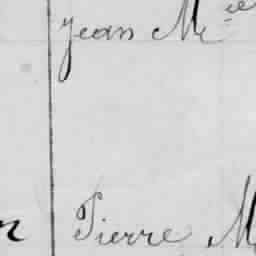 Jean Mie
n Pierre M